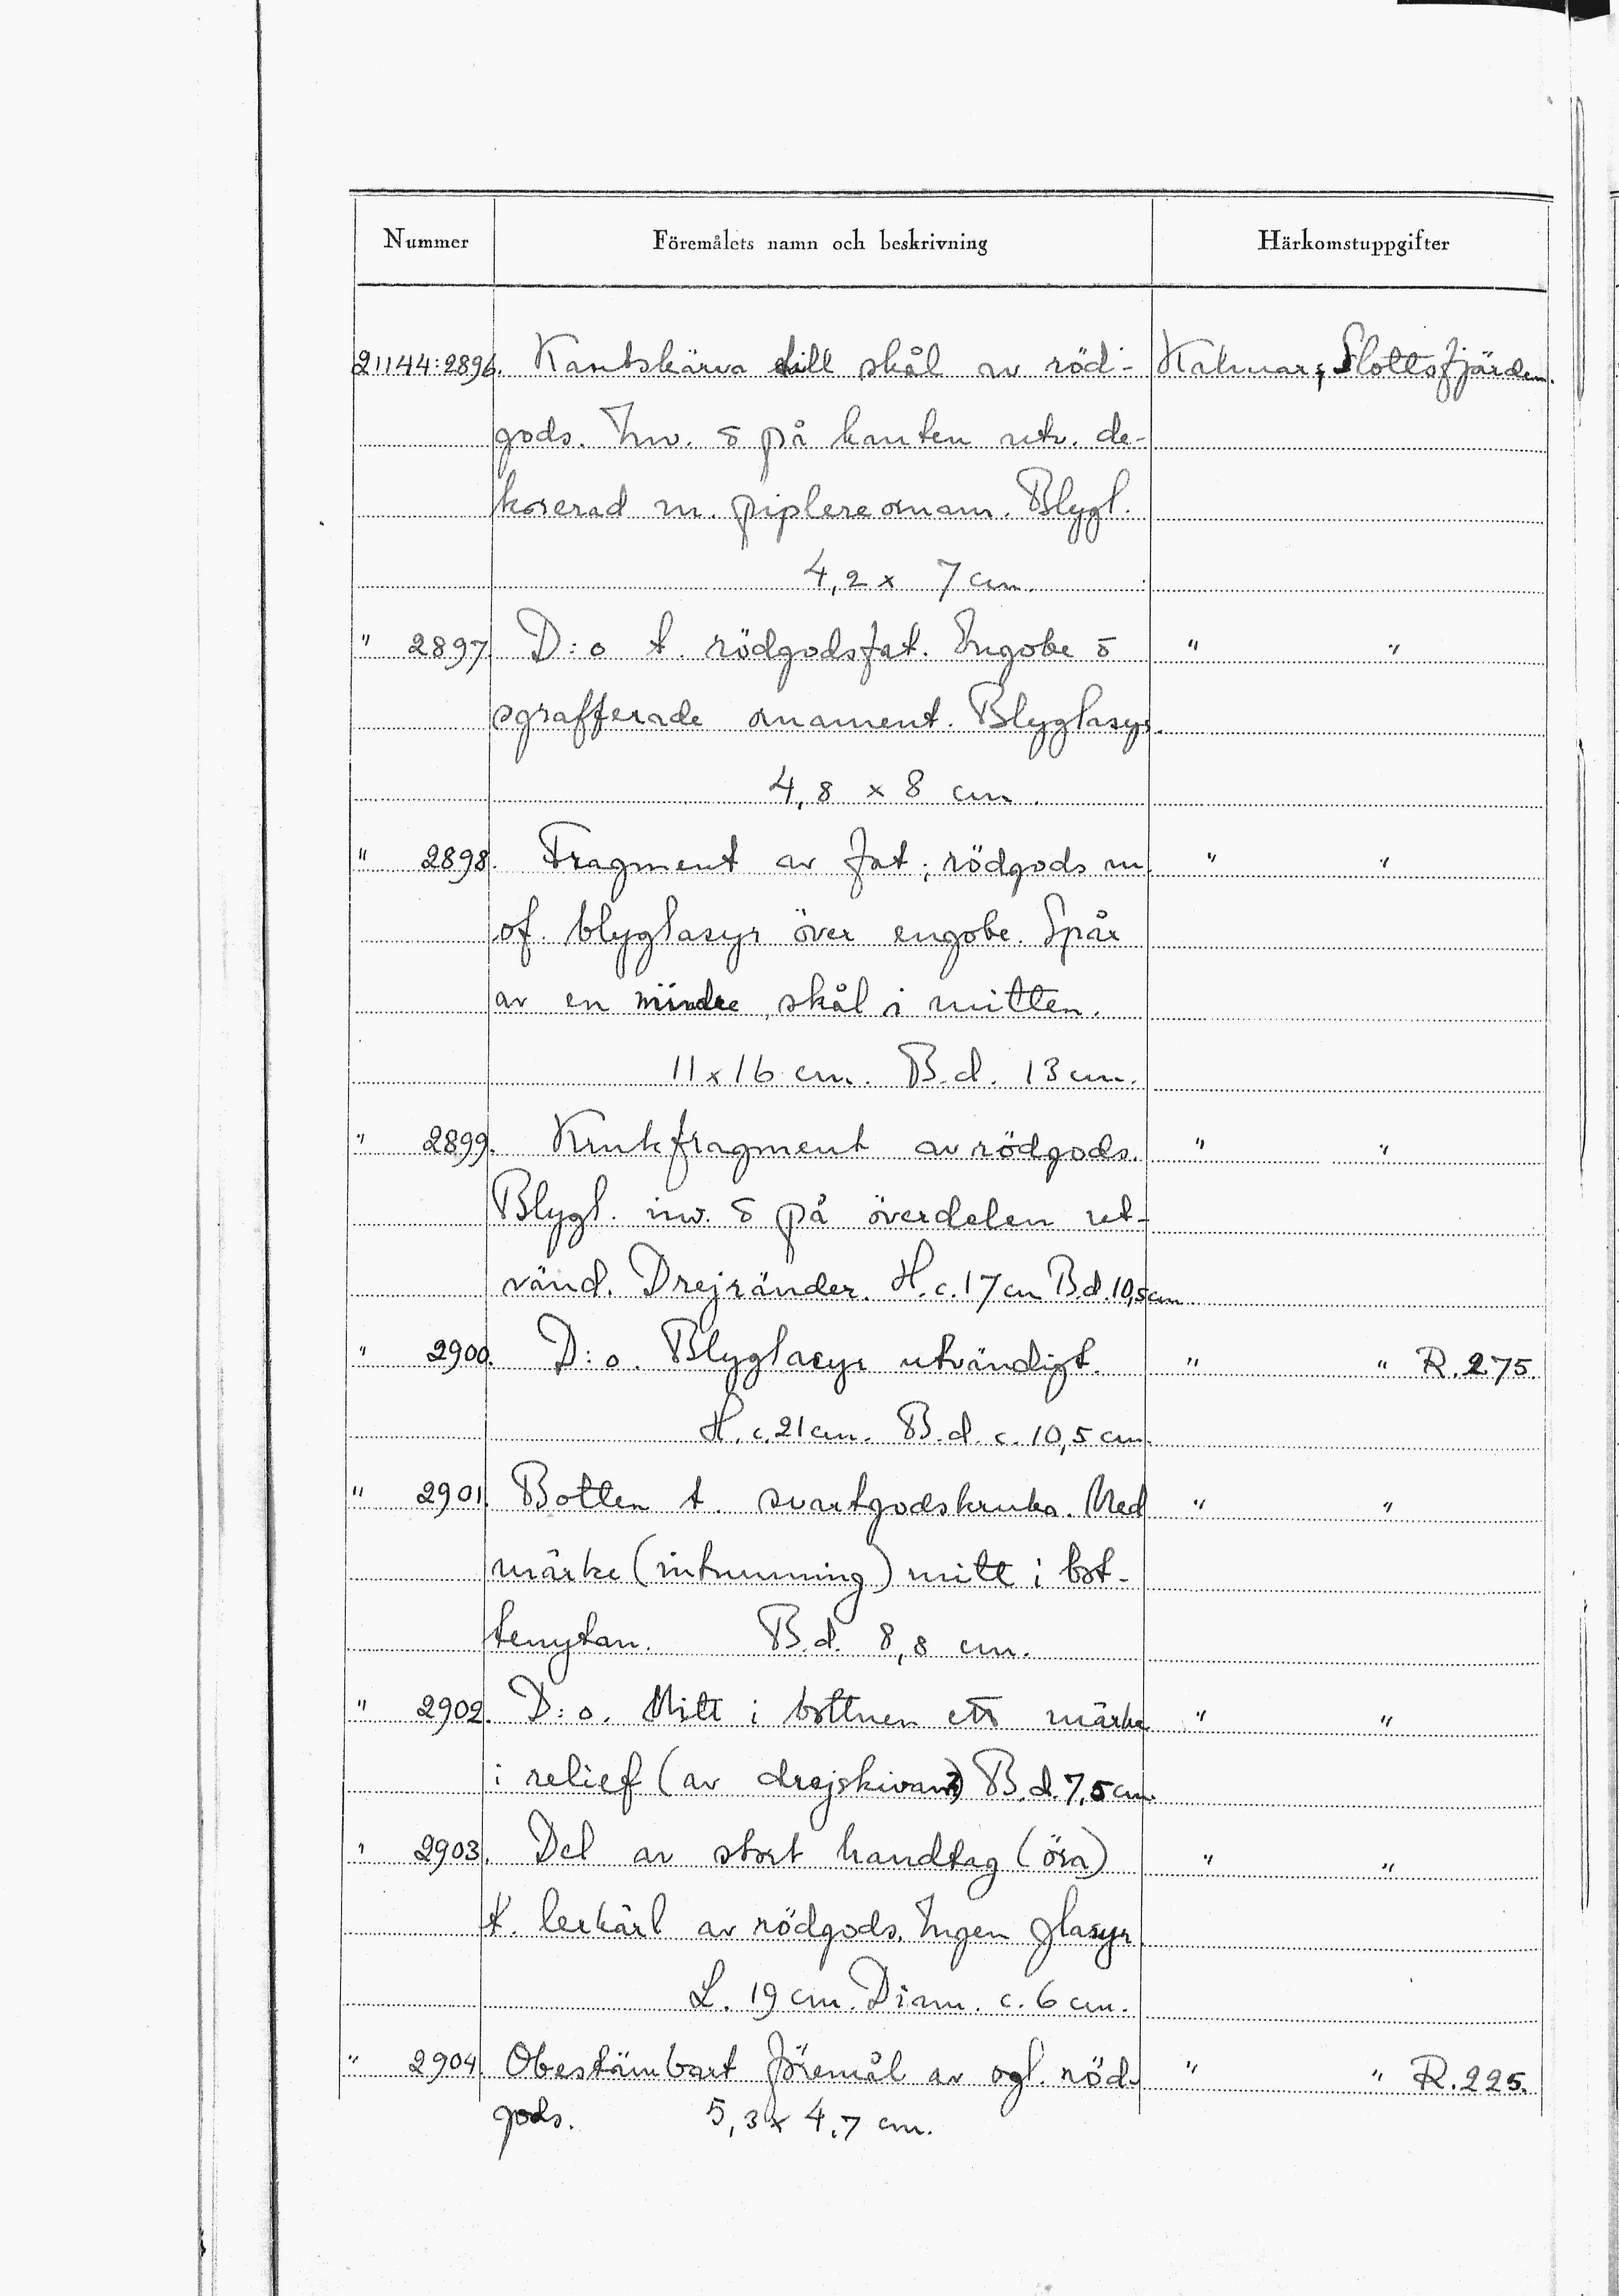 Nummer Föremålets namn och beskrivning Härkomstuppgifter
21144:2896. Kantskärva till skål av röd- Kalmar, Slottsfjärden.
gods. Inv. o på kanten utv. de-
korerad m. piplereornam. Blygl.
4,2 x 7 cm.
" 2897. D:o t. rödgodsfat. Engobe o " "
sgrafferade ornament. Blyglasyr.
4,8 x 8 cm.
" 2898. Fragment av fat; rödgods m. " "
of. blyglasyr över engobe. Spår
av en mindre skål i mitten.
11 x 16 cm. B.d. 13 cm.
" 2899. Krukfragment av rödgods. " "
Blygl. inv. o på överdelen ut-
vänd. Drejränder. H.c. 17 cm B.d. 10,5 cm
" 2900. D:o. Blyglasyr utvändigt. " " R.275.
H. c. 21 cm. B.d. c. 10,5 cm.
" 2901. Botten t. svartgodskruka. Med " "
märke (intumning) mitt i bot-
tenytan. B.d. 8,8 cm.
" 2902. D:o. Mitt i bottnen ett märke " "
i relief (av drejskivan?) B.d. 7,5 cm.
" 2903. Del av stort handtag (öra) " "
t. lerkärl av rödgods. Ingen glasyr.
L. 19 cm. Diam. c. 6 cm.
" 2904. Obestämbart föremål av ogl. röd- " " R.225.
gods. 5,3 x 4,7 cm.